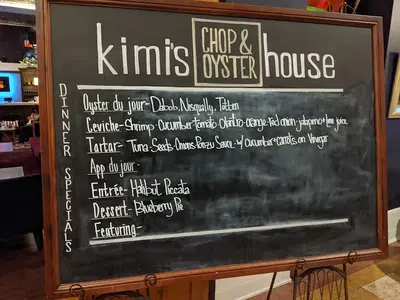 kimi's CHOP & OYSTER house
DINNER SPECIALS
Oyster du jour- Dabob, Nisqually, Totten
Ceviche- Shrimp cucumber tomato cilantro orange red onion jalapeno + lime juice
Tartar- Tuna Seeds Onions Ponzu Sauce w/ cucumber + carrots on Vinegar
App du jour-
Entrée- Halibut Piccata
Dessert- Blueberry Pie
Featuring-